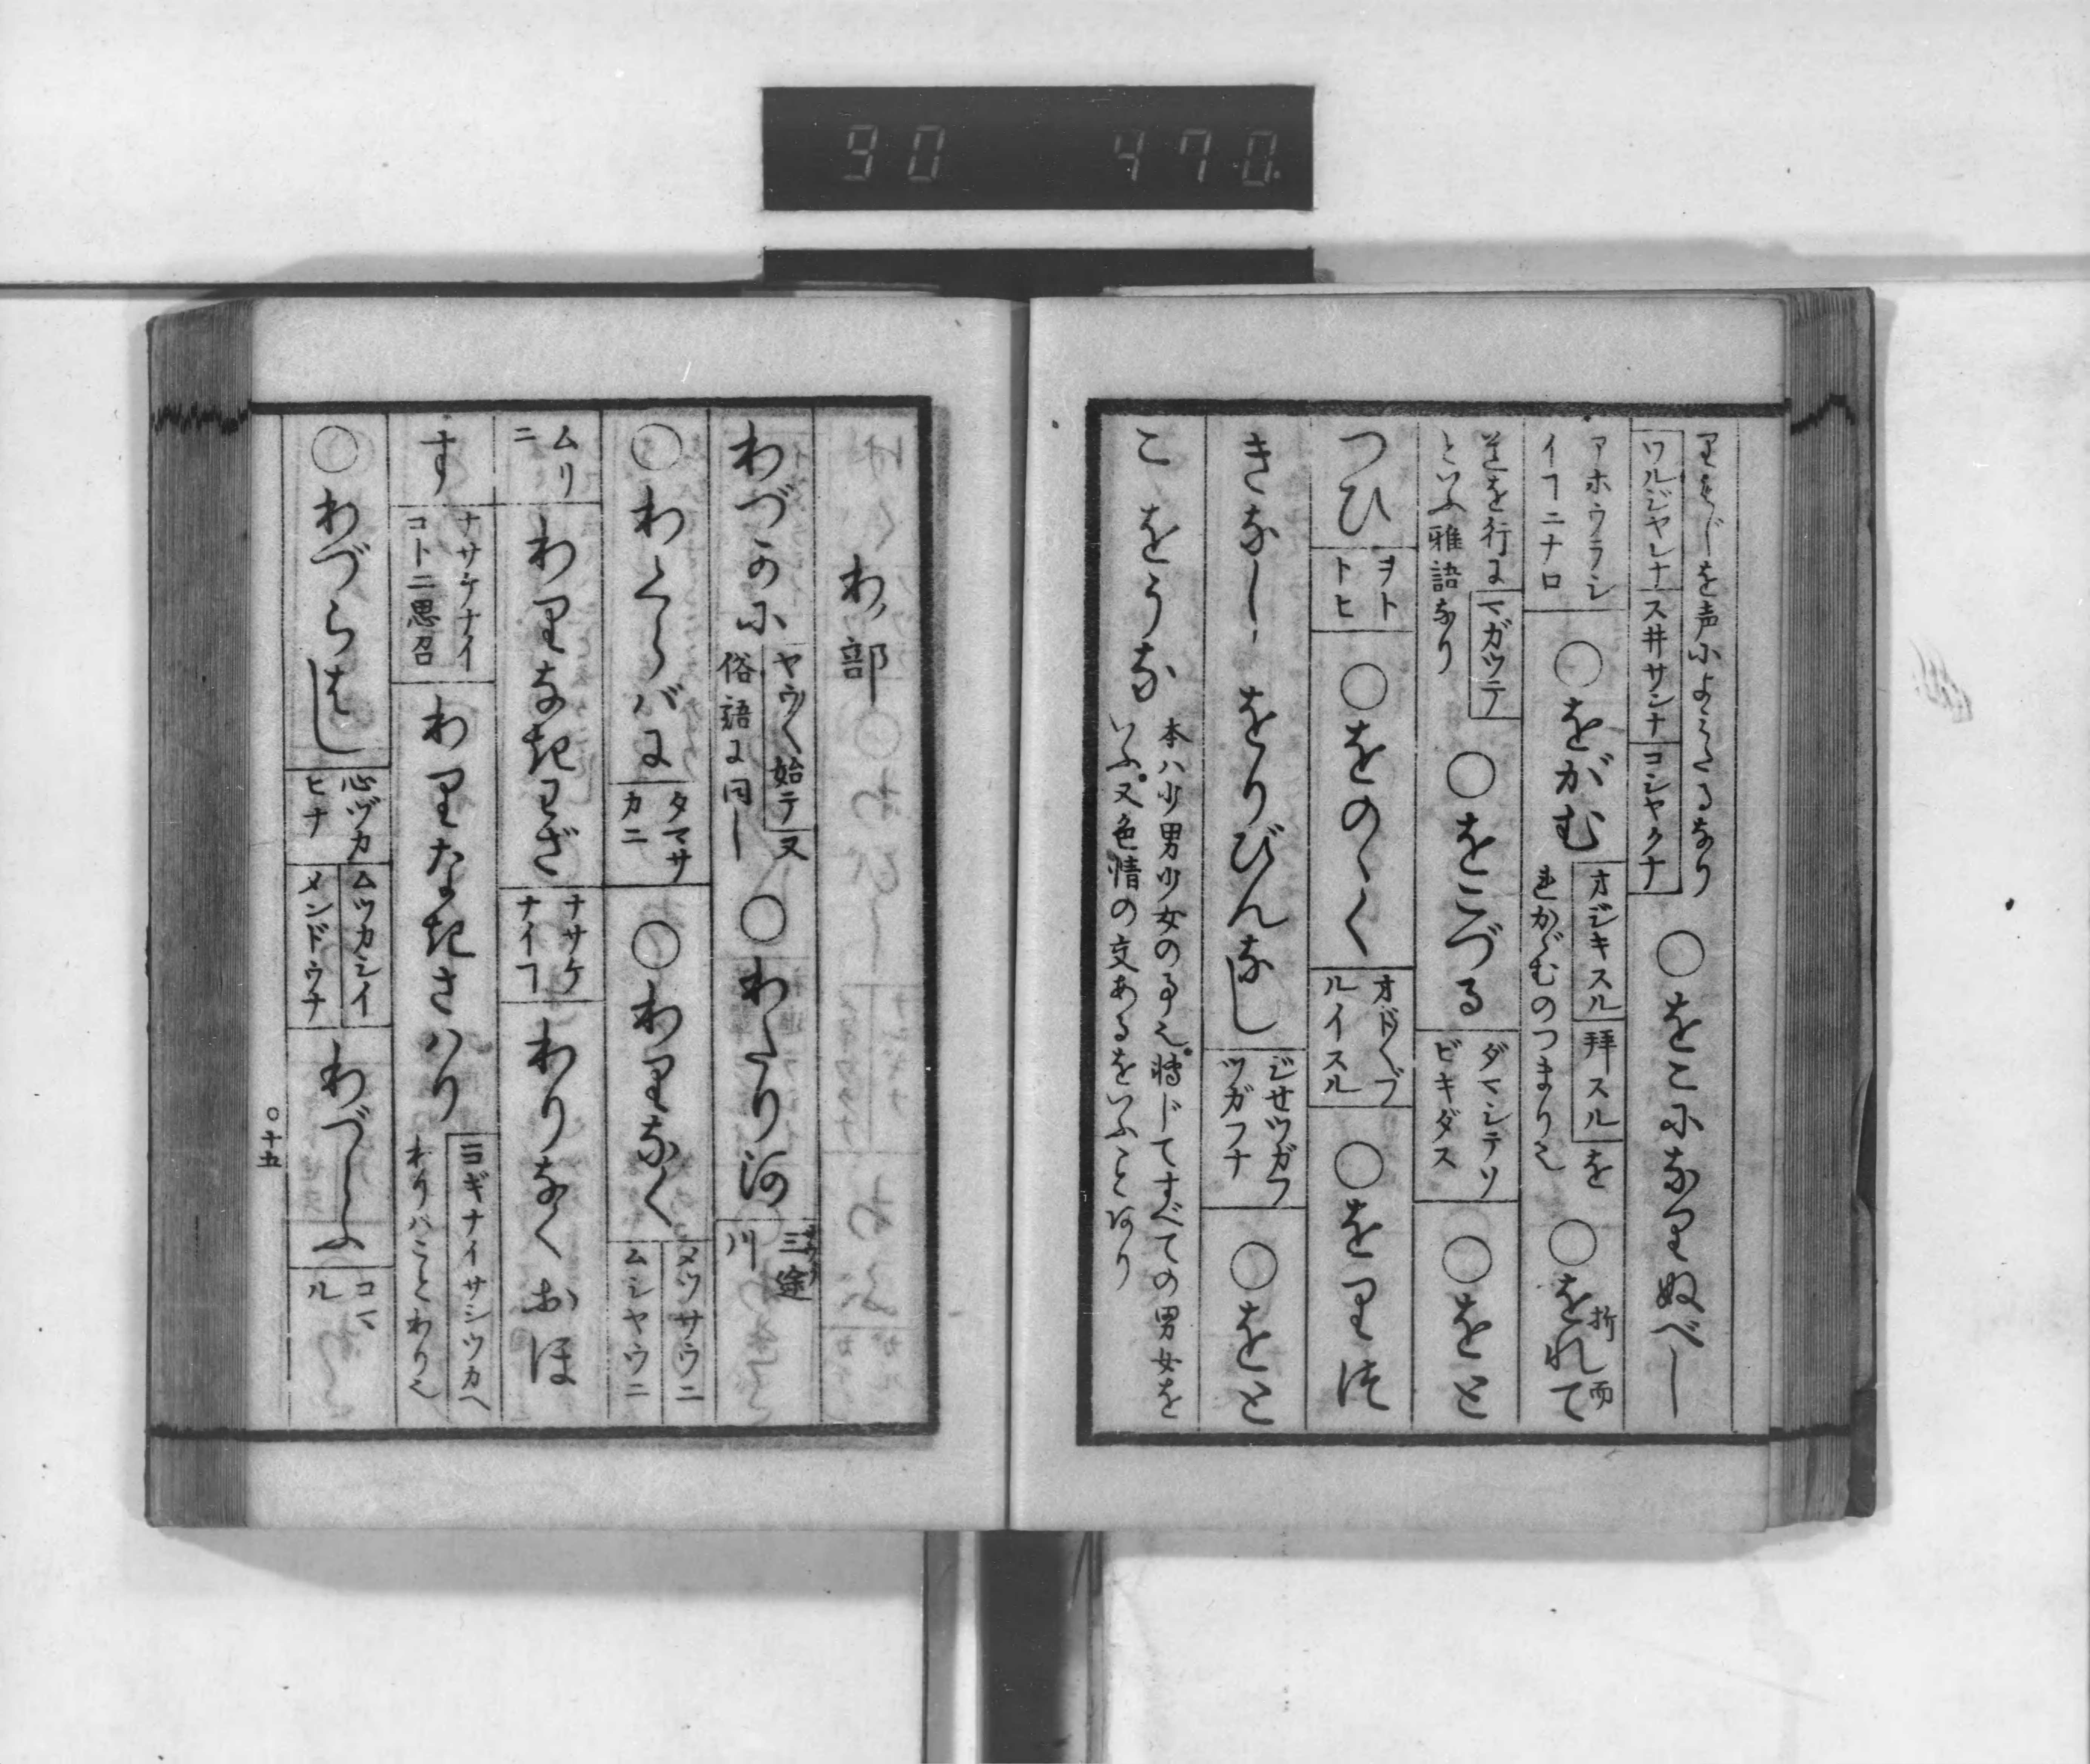 90 470
りもじを声によみたるなり
ワルジヤレナ スヰサンナ コシヤクナ ○をこになりぬべし
アホウラシ
イヿニナロ ○をがむ オジキスル 拝スルを
れかゞむのつまり也 ○をれて 折而
道を行に マガツテ
といふ雅語なり ○をこづる ダマシテソ
ビキダス ○をと
つひ ヲト
トヒ ○をのゝく オドく ブ
ルイスル ○をりは
きなし をりびんなし ジセツガフ
ツガフナ ○をと
こをうな 本ハ少男少女の事也。轉じてすべての男女を
いふ。又色情の交あるをいふことあり
わノ部
わづかに ヤウく 始テ 又
俗語に同し ○わたり河 三途
川
○わくらバに タマサ
カニ ○わりなく メツサウニ
ムシヤウニ
ムリ
ニ わりなきわざ ナサケ
ナイヿ わりなくおほ
す ナサケナイ
コトニ思召 わりなきさハり ヨギナイサシツカヘ
わりハことわり也
○わづらはし 心ヅカ
ヒナ ムツカシイ
メンドウナ わづらふ コマ
ル
○十五